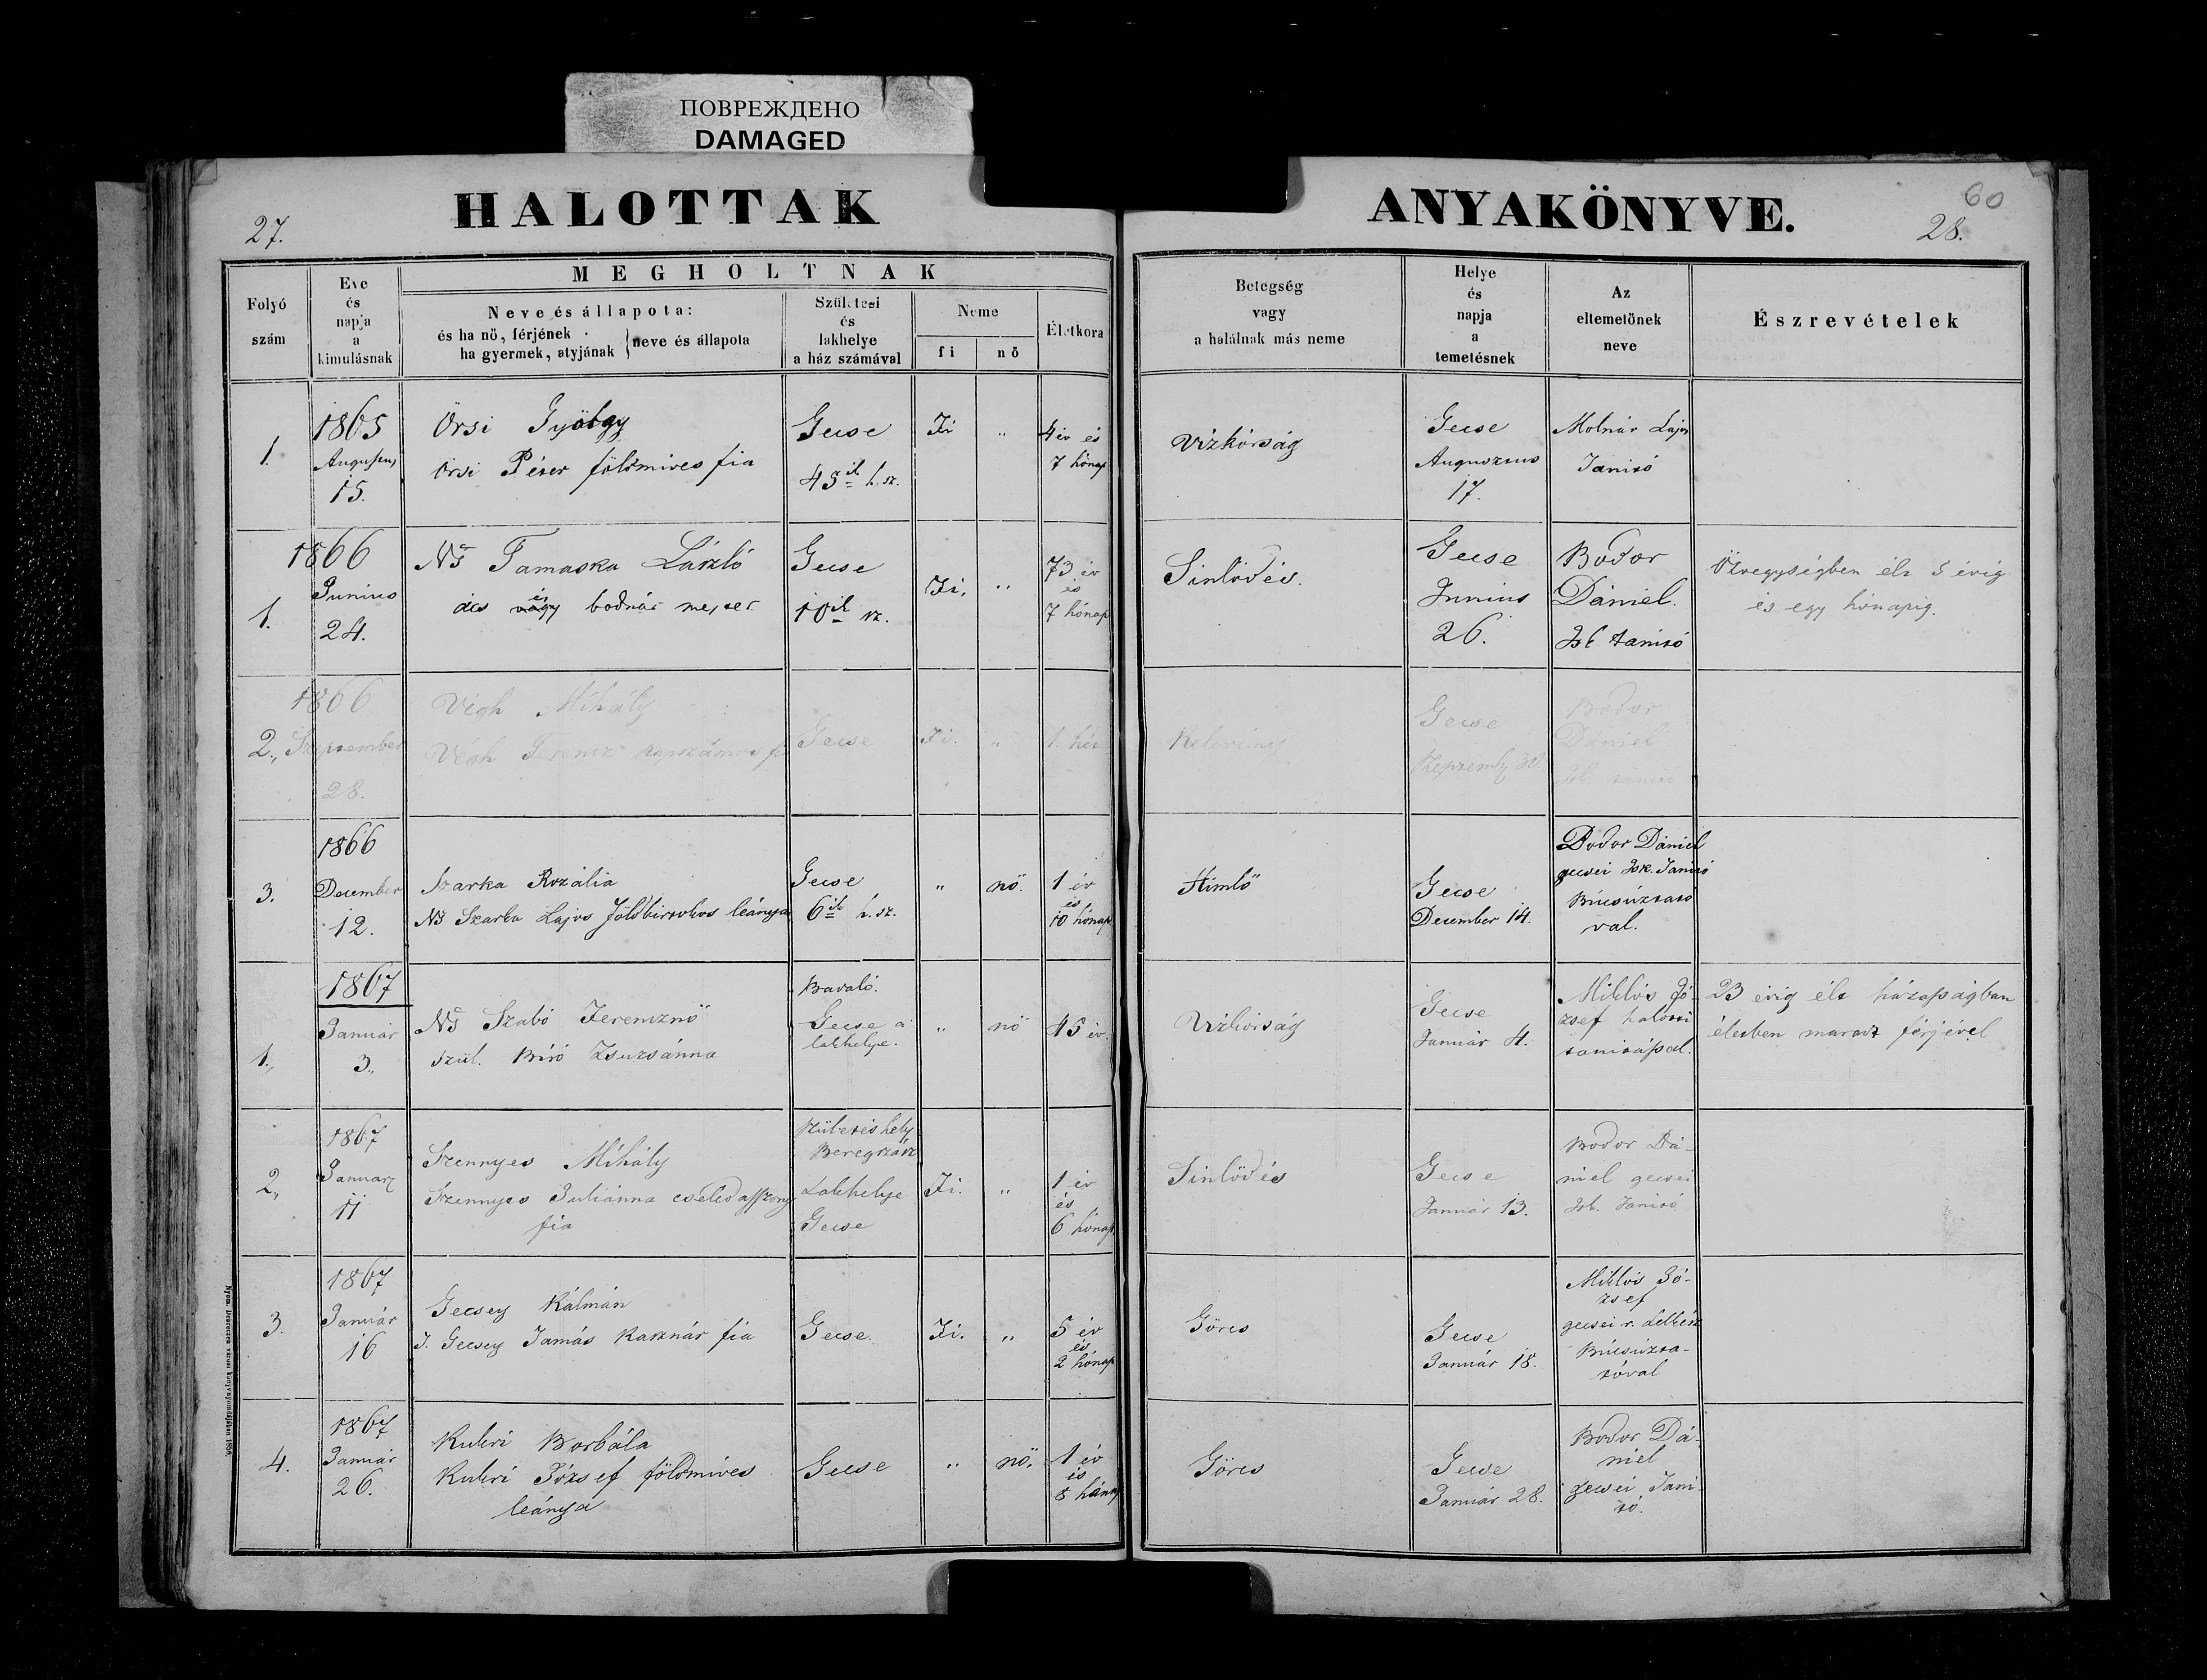 ПОВРЕЖДЕНО
DAMAGED
HALOTTAK
ANYAKÖNYVE.
60
27.
28.
Folyó
szám
Eve
és
napja
a
kimulásnak
MEGHOLTNAK
Neve és állapota:
és ha nö, férjének
ha gyermek, atyjának
neve és állapota
Születesi
és
lakhelye
a ház számával
Neme
fi
nö
Életkora
Betegség
vagy
a halálnak más neme
Helye
és
napja
a
temetésnek
Az
eltemetönek
neve
Észrevételek
1.
1865
Augustus
15.
Örsi György
Örsi Péter földmives fia
Gecse
45ik h. sz.
Fi
"
4 év és
7 hónap
Vízkórság
Gecse
Augusztus
17.
Molnár Lajos
Tanitó
1.
1866
Junius
24.
Ns Tamaska László
ács és bodnár mester
Gecse
10ik sz.
Fi.
"
73 év
és
7 hónap
Sinlödés.
Gecse
Junius
26.
Bodor
Dániel.
Isk tanitó
Özvegységben élt 5 évig
és egy hónapig.
2.,
1866
Szeptember
28.
Végh Mihály
Végh Ferencz napszámos fia
Gecse
Fi.
"
1. hét
Kelevény
Gecse
Septemb 30.
Bodor
Dániel
Isk. tanitó
3.
1866
December
12.
Szarka Rozália
Ns Szarka Lajos földbirtokos leánya
Gecse
6ik h. sz.
"
nö.
1 év
és
10 hónap
Himlö
Gecse
December 14.
Bodor Dániel
gecsei Isk. Tanitó
Búcsúztató
val.
1.,
1867
Január
3.,
Ns Szabó Ferencznö
szül. Bíró Zsuzsánna
Gecse a
lakhelye.
"
nö
45 év.
Vizkórság
Gecse
Január 4.
Miklós Jó-
zsef halotti
tanitással.
23 évig élt házasságban
életben maradt férjével
2.,
1867
Januar
11
Szennyes Mihály
Szennyes Juliánna cselédasszony
fia
Születés hely
Beregszász
Lakhelye
Gecse
Fi.
"
1 év
és
6 hónap
Sinlödés
Gecse
Január 13.
Bodor Dá-
niel gecsei
Isk. Tanitó
3.
1867
Január
16
Gecsey Kálmán
I. Gecsey Tamás kasznár fia
Gecse.
Fi.
"
5 év
és
2 hónap
Görcs
Gecse
Január 18.
Miklós Jó-
zsef
gecsei r. Lelkész
Búcsúzta-
tóval
4.
1867
Január
26.
Borbála
József földmives
leánya
Gecse
"
nö.
1 év
és
8 hónap
Görcs
Gecse
Január 28.
Bodor Dá-
niel
gecsei Tani-
tó.